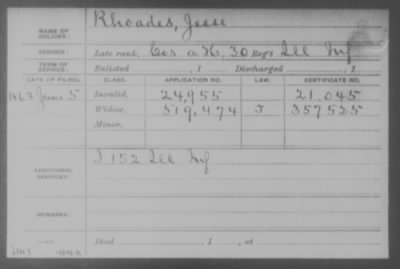 NAME OF SOLDIER: Rhoades, Jesse
SERVICE: Late rank, Cor Co. H, 30 Reg't Ill Inf
TERM OF SERVICE: Enlisted , 1 Discharged , 1
DATE OF FILING. CLASS. APPLICATION NO. LAW. CERTIFICATE NO.
1863 June 5 Invalid, 24,955 21,045
Widow, 519,474 J 357525
Minor,
ADDITIONAL SERVICES: I 152 Ill Inf
REMARKS:
Died , 1 , at